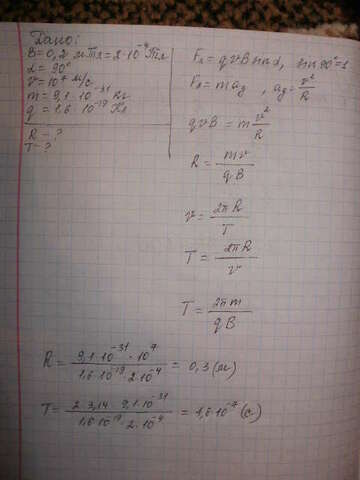 Дано:
B = 0,2 мТл = 2·10⁻⁴ Тл
α = 90°
v = 10⁷ м/с
m = 9,1·10⁻³¹ кг
q = 1,6·10⁻¹⁹ Кл
R - ?
T - ?
Fл = qvB sin α, sin 90° = 1
Fл = m aц , aц = v²/R
qvB = m v²/R
R = mv/qB
v = 2πR/T
T = 2πR/v
T = 2πm/qB
R = 9,1·10⁻³¹·10⁷/1,6·10⁻¹⁹·2·10⁻⁴ = 0,3 (м)
T = 2·3,14·9,1·10⁻³¹/1,6·10⁻¹⁹·2·10⁻⁴ = 1,6·10⁻⁷ (с)